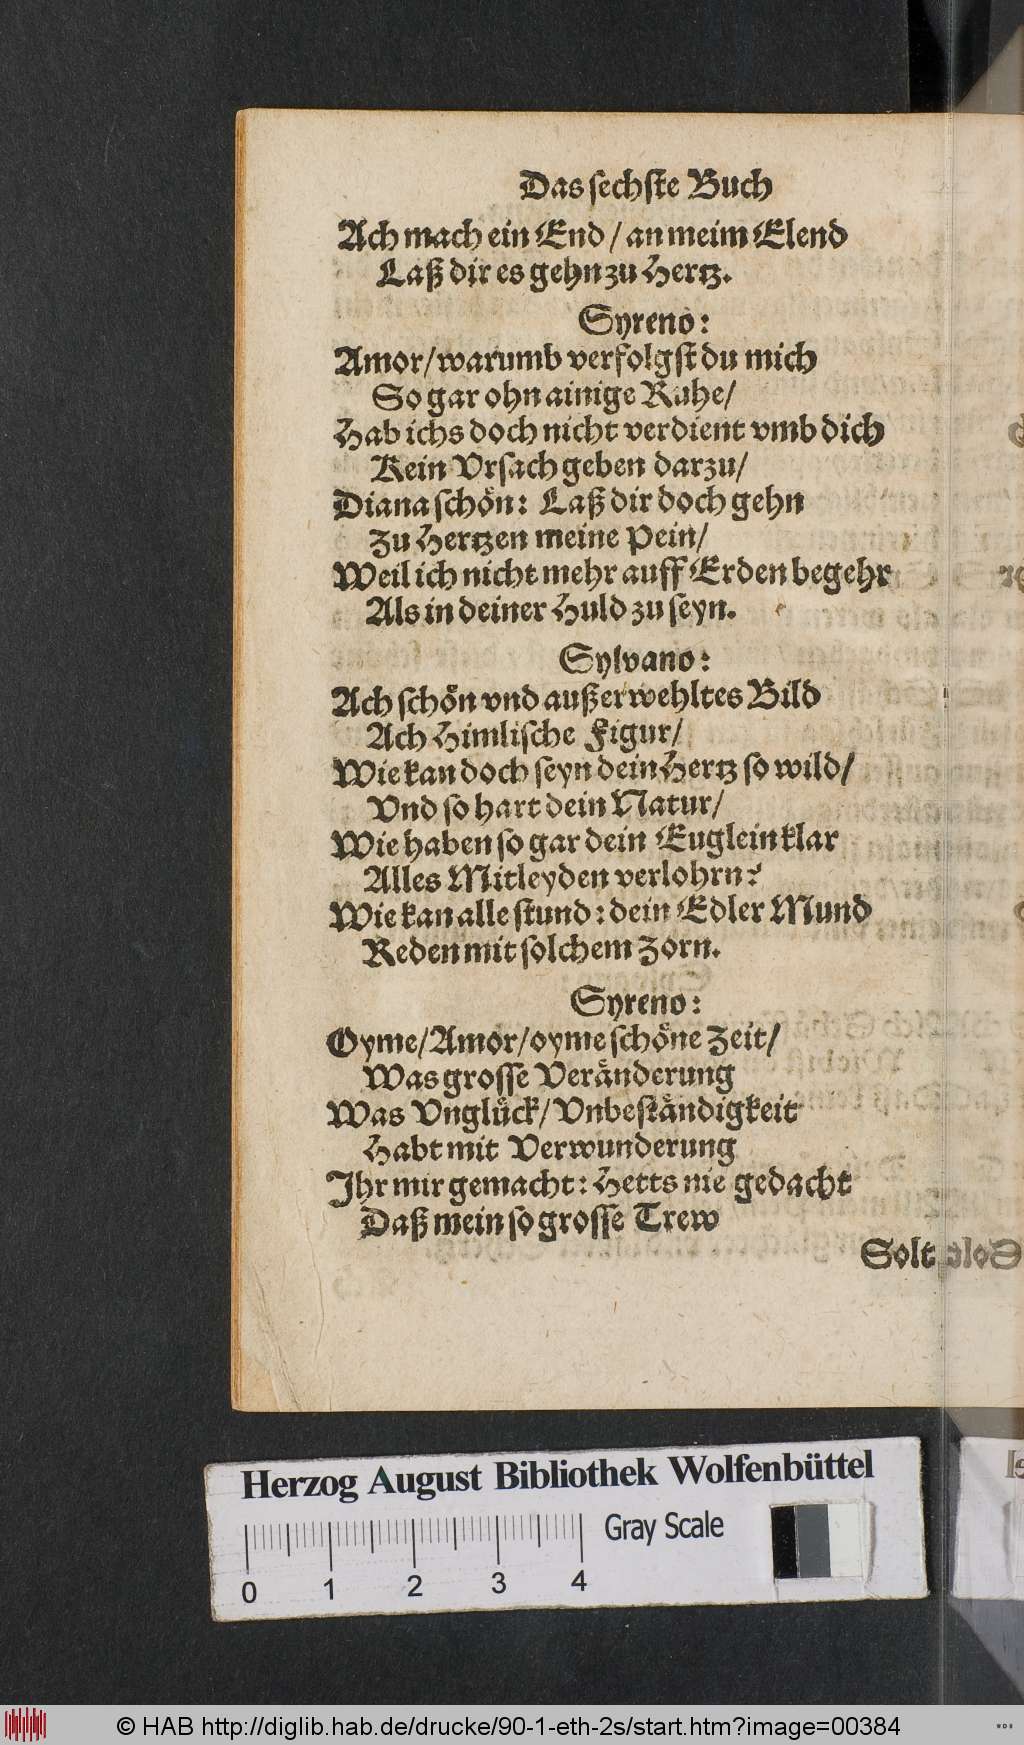 Das sechste Buch
Ach mach ein End / an meim Elend
Laß dir es gehn zu Hertz.
Syreno:
Amor/warumb verfolgst du mich
So gar ohn ainige Ruhe/
Hab ichs doch nicht verdient vmb dich
Kein Vrsach geben darzu/
Diana schön: Laß dir doch gehn
Zu Hertzen meine Pein/
Weil ich nicht mehr auff Erden begehr
Als in deiner Huld zu seyn.
Sylvano:
Ach schön vnd außerwehltes Bild
Ach Himlische Figur/
Wie kan doch seyn dein Hertz so wild/
Vnd so hart dein Natur/
Wie haben so gar dein Euglein klar
Alles Mitleyden verlohrn?
Wie kan alle stund: dein Edler Mund
Reden mit solchem Zorn.
Syreno:
Oyme/Amor/oyme schöne Zeit/
Was grosse Veränderung
Was Vnglück/Vnbeständigkeit
Habt mit Verwunderung
Ihr mir gemacht: Hetts nie gedacht
Daß mein so grosse Trew
Solt
Herzog August Bibliothek Wolfenbüttel
Gray Scale
0 1 2 3 4
© HAB http://diglib.hab.de/drucke/90-1-eth-2s/start.htm?image=00384